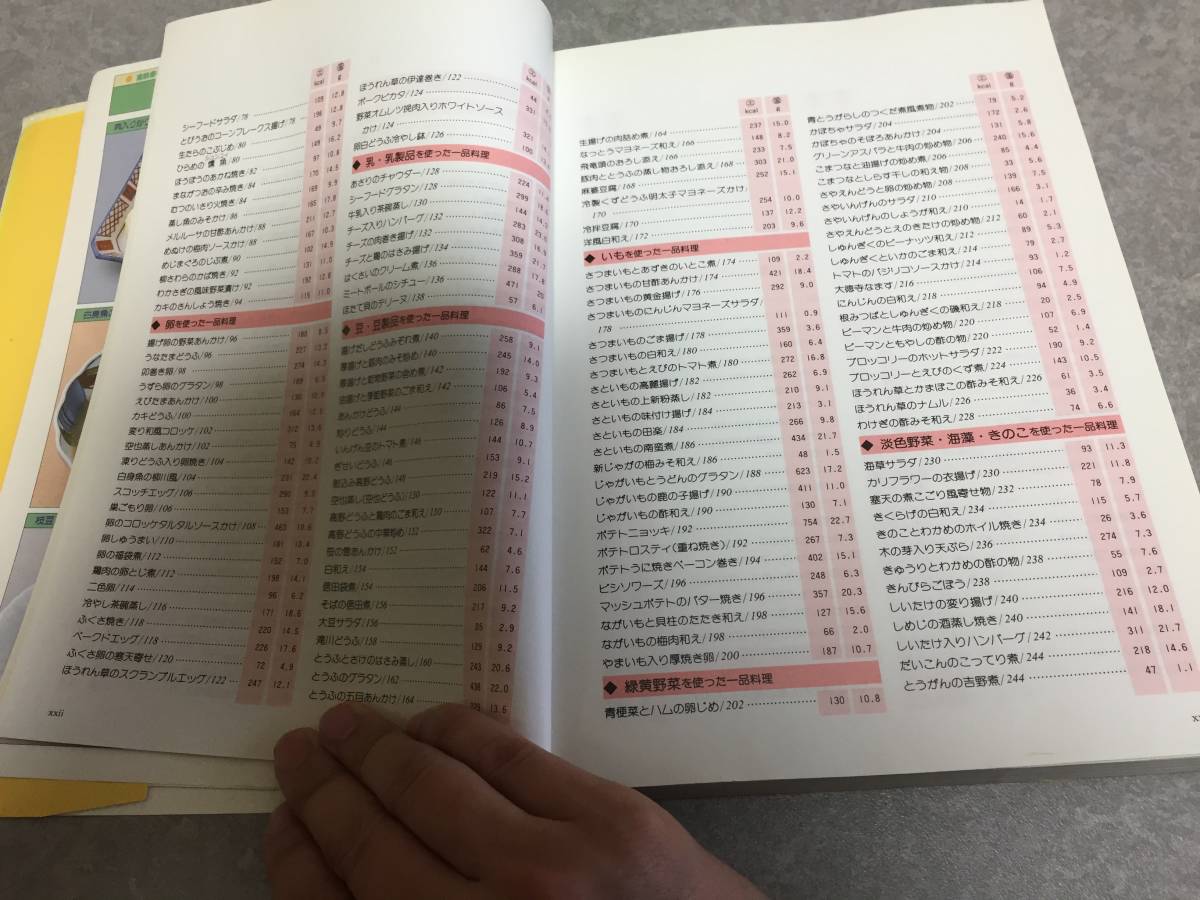 シーフードサラダ/78 109 12.8
とびうおのコーンフレークス揚げ/78 196 12.8
生たらのこぶじめ/80 49 9.7
ひらめの燻魚/80 149 16.2
ほうぼうのあかね焼き/82 97 10.8
まながつおの辛み焼き/84 170 14.5
むつのいさり火焼き/84 169 9.9
蒸し魚のみそかけ/86 165 17.8
メルルーサの甘酢あんかけ/88 211 12.7
めぬけの梅肉ソースかけ/88 167 10.3
めじまぐろのじぶ煮/90 102 14.5
柳さわらのかば焼き/92 131 11.0
わかさぎの風味野菜漬け/92 192 12.8
カキのさんしょう焼き/94 115 11.0
◆ 卵を使った一品料理
揚げ卵の野菜あんかけ/96
うなたまどうふ/96
卯巻き卵/98
うずら卵のグラタン/98
えびたまあんかけ/100
カキどうふ/100
変り和風コロッケ/102
空也蒸しあんかけ/102
凍りどうふ入り卵焼き/104
白身魚の柳川風/104
スコッチエッグ/106
巣ごもり卵/106
卵のコロッケタルタルソースかけ/108
卵しゅうまい/110
卵の福袋煮/112
鶏肉の卵とじ煮/112 198 14.1
二色卵/114 96 6.2
冷やし茶碗蒸し/116 171 18.6
ふくさ焼き/118 220 14.5
ベークドエッグ/118 226 17.6
ふくさ卵の寒天寄せ/120 72 4.9
ほうれん草のスクランブルエッグ/122 247 12.1
xxii
kcal g
ほうれん草の伊達巻き/122 44
ポークピカタ/124 331
野菜オムレツ挽肉入りホワイトソース
かけ/124 321
卵白どうふ冷やし鉢/126 105
◆ 乳・乳製品を使った一品料理
あさりのチャウダー/128 224
シーフードグラタン/128 299
牛乳入り茶碗蒸し/130 144
チーズ入りハンバーグ/132 283
チーズの肉巻き揚げ/132 308
チーズと鶏のはさみ揚げ/134 359 21.7
はくさいのクリーム煮/136 288
ミートボールのシチュー/136 471
ほたて貝のデリーヌ/138 57 6.1
◆ 豆・豆製品を使った一品料理
揚げだしどうふみぞれ煮/140 258 9.1
厚揚げと豚肉のみそ炒め/140 245 14.0
厚揚げと乾物野菜の含め煮/142 192 9.3
油揚げと夏野菜のごま和え/142 106 5.4
あんかけどうふ/144 86 7.5
炒りどうふ/144 126 8.9
いんげん豆のトマト煮/146 144 10.7
ぎせいどうふ/146 153 9.1
射込み高野どうふ/148 219 15.2
空也蒸し(空也どうふ)/150 122 11.1
高野どうふと鶏肉のごま和え/150 107 7.1
高野どうふの中華炒め/152 322 7.1
笹の雪あんかけ/152 62 4.6
白和え/154 144 7.6
信田袋煮/154 206 11.5
そばの信田煮/156 217 9.2
大豆サラダ/156 35 2.9
滝川どうふ/158 129 9.2
とうふとさけのはさみ蒸し/160 243 20.6
とうふのグラタン/162 438 22.0
とうふの五目あんかけ/164 229 13.5
kcal g
生揚げの肉詰め煮/164 237 15.0
なっとうマヨネーズ和え/166 148 8.2
飛竜頭のおろし添え/166 233 7.5
豚肉ととうふの蒸し物おろし添え/168 303 21.0
麻婆豆腐/168 252 15.1
冷製くずどうふ明太子マヨネーズかけ/
170 254 10.0
冷拌豆腐/170 137 12.2
洋風白和え/172 203 9.6
◆ いもを使った一品料理
さつまいもとあずきのいとこ煮/174 109 2.2
さつまいもの甘酢あんかけ/174 421 18.4
さつまいもの黄金揚げ/176 292 9.0
さつまいものにんじんマヨネーズサラダ/
178 111 0.9
さつまいものごま揚げ/178 359 3.6
さつまいもの白和え/180 160 6.4
さつまいもとえびのトマト煮/180 272 16.8
さといもの高麗揚げ/182 262 6.9
さといもの上新粉蒸し/182 210 9.1
さといもの味付け揚げ/184 213 3.1
さといもの田楽/184 266 9.8
さといもの南蛮煮/186 434 21.7
新じゃがの梅みそ和え/186 48 1.5
じゃがいもとうどんのグラタン/188 623 17.2
じゃがいもの鹿の子揚げ/190 411 11.0
じゃがいもの酢和え/190 130 7.1
ポテトニョッキ/192 754 22.7
ポテトロスティ(重ね焼き)/192 267 7.3
ポテトうに焼きベーコン巻き/194 402 15.1
ビシソワーズ/196 248 6.3
マッシュポテトのバター焼き/196 357 20.3
ながいもと貝柱のたたき和え/198 127 15.6
ながいもの梅肉和え/198 66 2.0
やまいも入り厚焼き卵/200 187 10.7
◆ 緑黄野菜を使った一品料理
青梗菜とハムの卵じめ/202 130 10.8
kcal g
青とうがらしのつくだ煮風煮物/202 79 5.2
かぼちゃサラダ/204 172 2.6
かぼちゃのそぼろあんかけ/204 131 5.8
グリーンアスパラと牛肉の炒め物/206 240 15.6
こまつなと油揚げの炒め煮/206 85 4.4
こまつなとしらす干しの和え物/208 33 5.6
さやえんどうと卵の炒め物/208 139 7.5
さやいんげんのサラダ/210 166 3.1
さやいんげんのしょうが和え/210 14 1.7
さやえんどうとえのきたけの炒め物/212 60 2.1
しゅんぎくのピーナッツ和え/212 89 5.3
しゅんぎくといかのごま和え/214 79 2.7
トマトのバジリコソースかけ/214 93 1.2
大徳寺なます/216 106 7.5
にんじんの白和え/218 94 4.9
根みつばとしゅんぎくの磯和え/218 20 2.5
ピーマンと牛肉の炒め物/220 107 6.9
ピーマンともやしの酢の物/220 52 1.4
ブロッコリーのホットサラダ/222 190 9.4
ブロッコリーとえびのくず煮/224 143 10.5
ほうれん草とかまぼこの酢みそ和え/226 61 3.5
ほうれん草のナムル/226 36 3.4
わけぎの酢みそ和え/228 74 6.6
◆ 淡色野菜・海藻・きのこを使った一品料理
海草サラダ/230 93 11.3
カリフラワーの衣揚げ/230 221 11.8
寒天の煮こごり風寄せ物/232 78 7.9
きくらげの白和え/234 115 5.7
きのことわかめのホイル焼き/234 26 3.6
木の芽入り天ぷら/236 274 7.3
きゅうりとわかめの酢の物/238 55 7.6
きんぴらごぼう/238 109 2.7
しいたけの変り揚げ/240 216 12.0
しめじの酒蒸し焼き/240 141 18.1
しいたけ入りハンバーグ/242 311 21.7
だいこんのこってり煮/244 218 14.6
とうがんの吉野煮/244 47 1.1